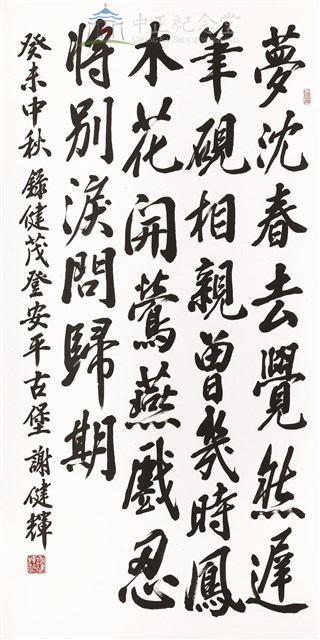 中正紀念堂
夢沈春去覺然遲
筆硯相親曾幾時鳳
木花開鶯燕戲忍
將別淚問歸期
癸未中秋錄健茂登安平古堡 謝健輝